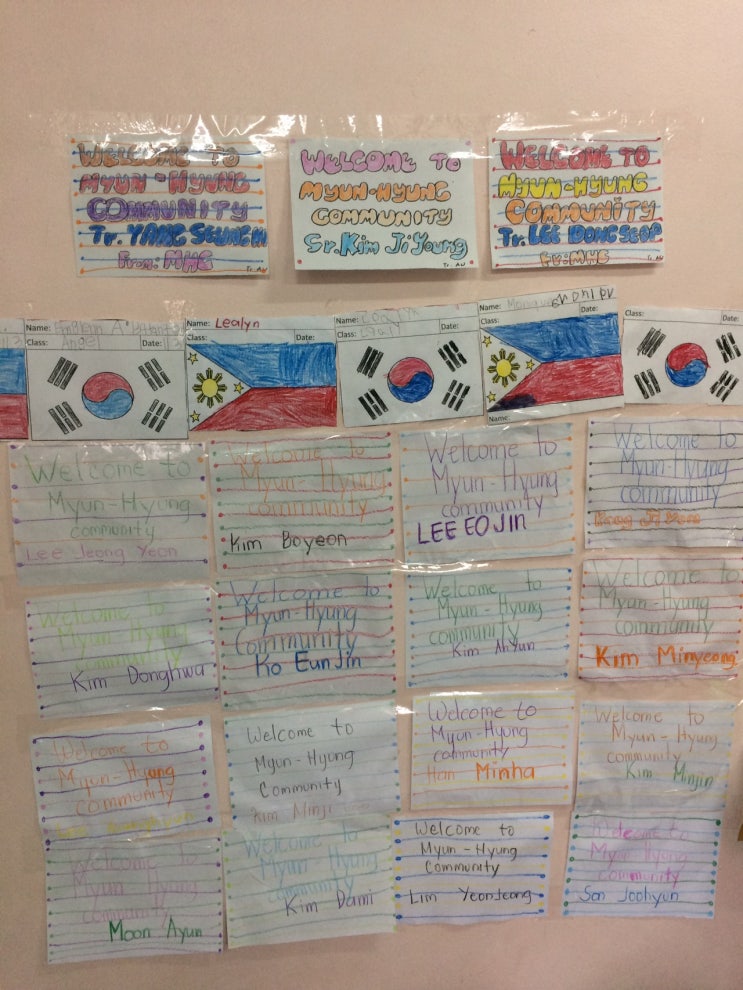 WELCOME TO
MYUN-HYUNG
COMMUNITY
Tr. YANG SEUNG
From: MHC
Tr. AU
WELCOME TO
MYUN-HYUNG
COMMUNITY
Sr. Kim Ji Young
Tr. AU
WELCOME TO
MYUN-HYUNG
COMMUNITY
Tr. LEE DONG SEOP
Fr: MHC
Tr. AU
Name:
Class: Angel Date:
Name: Lealyn
Class: Date:
Name:
Class: Date:
Name:
Class: Date:
Name:
Name:
Class: Date:
Welcome to
Myun-Hyung
community
Lee Jeong Yeon
Welcome to
Myun-Hyung
community
Kim Boyeon
Welcome to
Myun-Hyung
community
LEE EOJIN
Welcome to
Myun-Hyung
community
Welcome to
Myun-Hyung
community
Kim Donghwa
Welcome to
Myun-Hyung
Community
Ko EunJin
Welcome to
Myun-Hyung
community
Kim AhYun
Welcome to
Myun-Hyung
community
Kim Minyeong
Welcome to
Myun-Hyung
community
Welcome to
Myun-Hyung
Community
Kim Minji
Welcome to
Myun-Hyung
community
Han Minha
Welcome to
Myun-Hyung
community
Kim Minjin
Welcome to
Myun Hyung
community
Moon Ayun
Welcome to
Myun-Hyung
community
Kim Dami
Welcome to
Myun-Hyung
Community
Lim YeonJeong
Welcome to
Myun Hyung
community
Son Joohyun